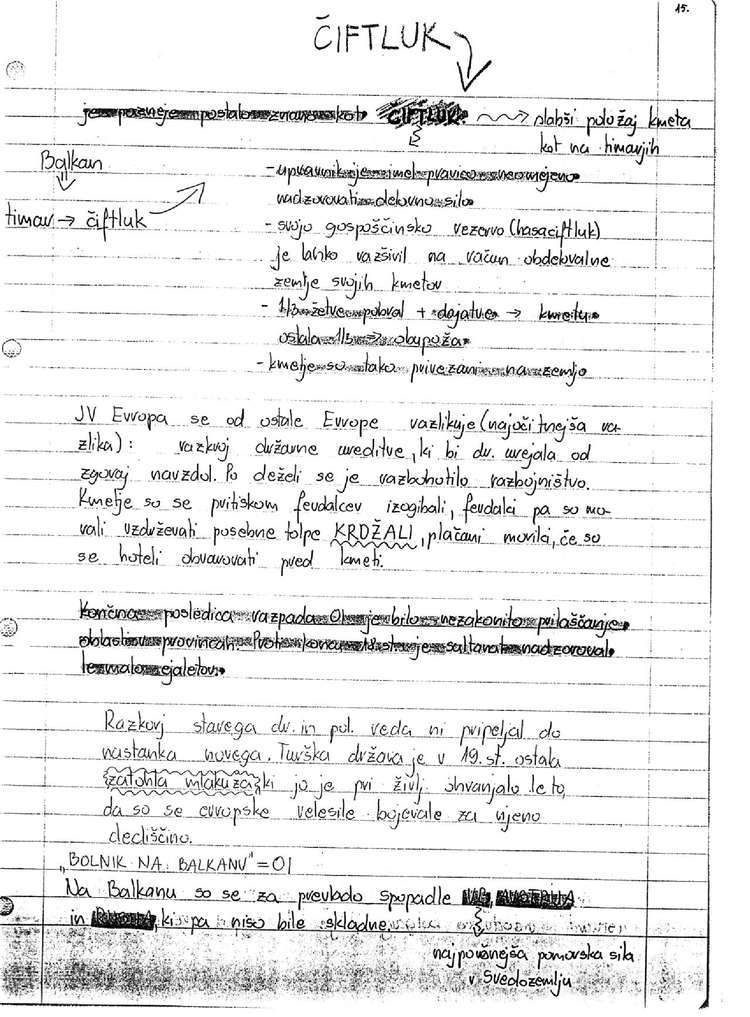 15.
ČIFTLUK
je pozneje postalo znano kot ČIFTLUK. → slabši položaj kmeta
kot na timarjih
Balkan
timar → čiftluk
- upravnik je imel pravico neomejeno
nadzorovati delovno silo
- svojo gospoščinsko rezervo (hasačiftluk)
je lahko razširil na račun obdelovalne
zemlje svojih kmetov
- 1/3 žetve pobral + dajatve → kmetu
ostala 1/3
- kmetje so tako privezani na zemljo
JV Evropa se od ostale Evrope razlikuje (najočitnejša ra-
zlika): razkroj državne ureditve, ki bi dr. urejala od
zgoraj navzdol. Po deželi se je razbohotilo razbojništvo.
Kmetje so se pritiskom feudalcev izogibali, feudalci pa so mo-
rali vzdrževati posebne tolpe KRDŽALI, plačani morilci, če so
se hoteli obvarovati pred kmeti.
Končna posledica razpada OI je bilo nezakonito prilaščanje
oblasti v provincah. Proti koncu 18. st. je sultanat nadzoroval
le malo ejaletov.
Razkroj starega dr. in pol. reda ni pripeljal do
nastanka novega. Turška država je v 19. st. ostala
zatohla mlakuža, ki jo je pri življ. ohranjalo le to,
da so se evropske velesile bojevale za njeno
dediščino.
"BOLNIK NA BALKANU" = OI
Na Balkanu so se za prevlado spopadle VB, AVSTRIJA
in RUSIJA, ki pa niso bile skladne.
najpovšnejša pomorska sila
v Sredozemlju